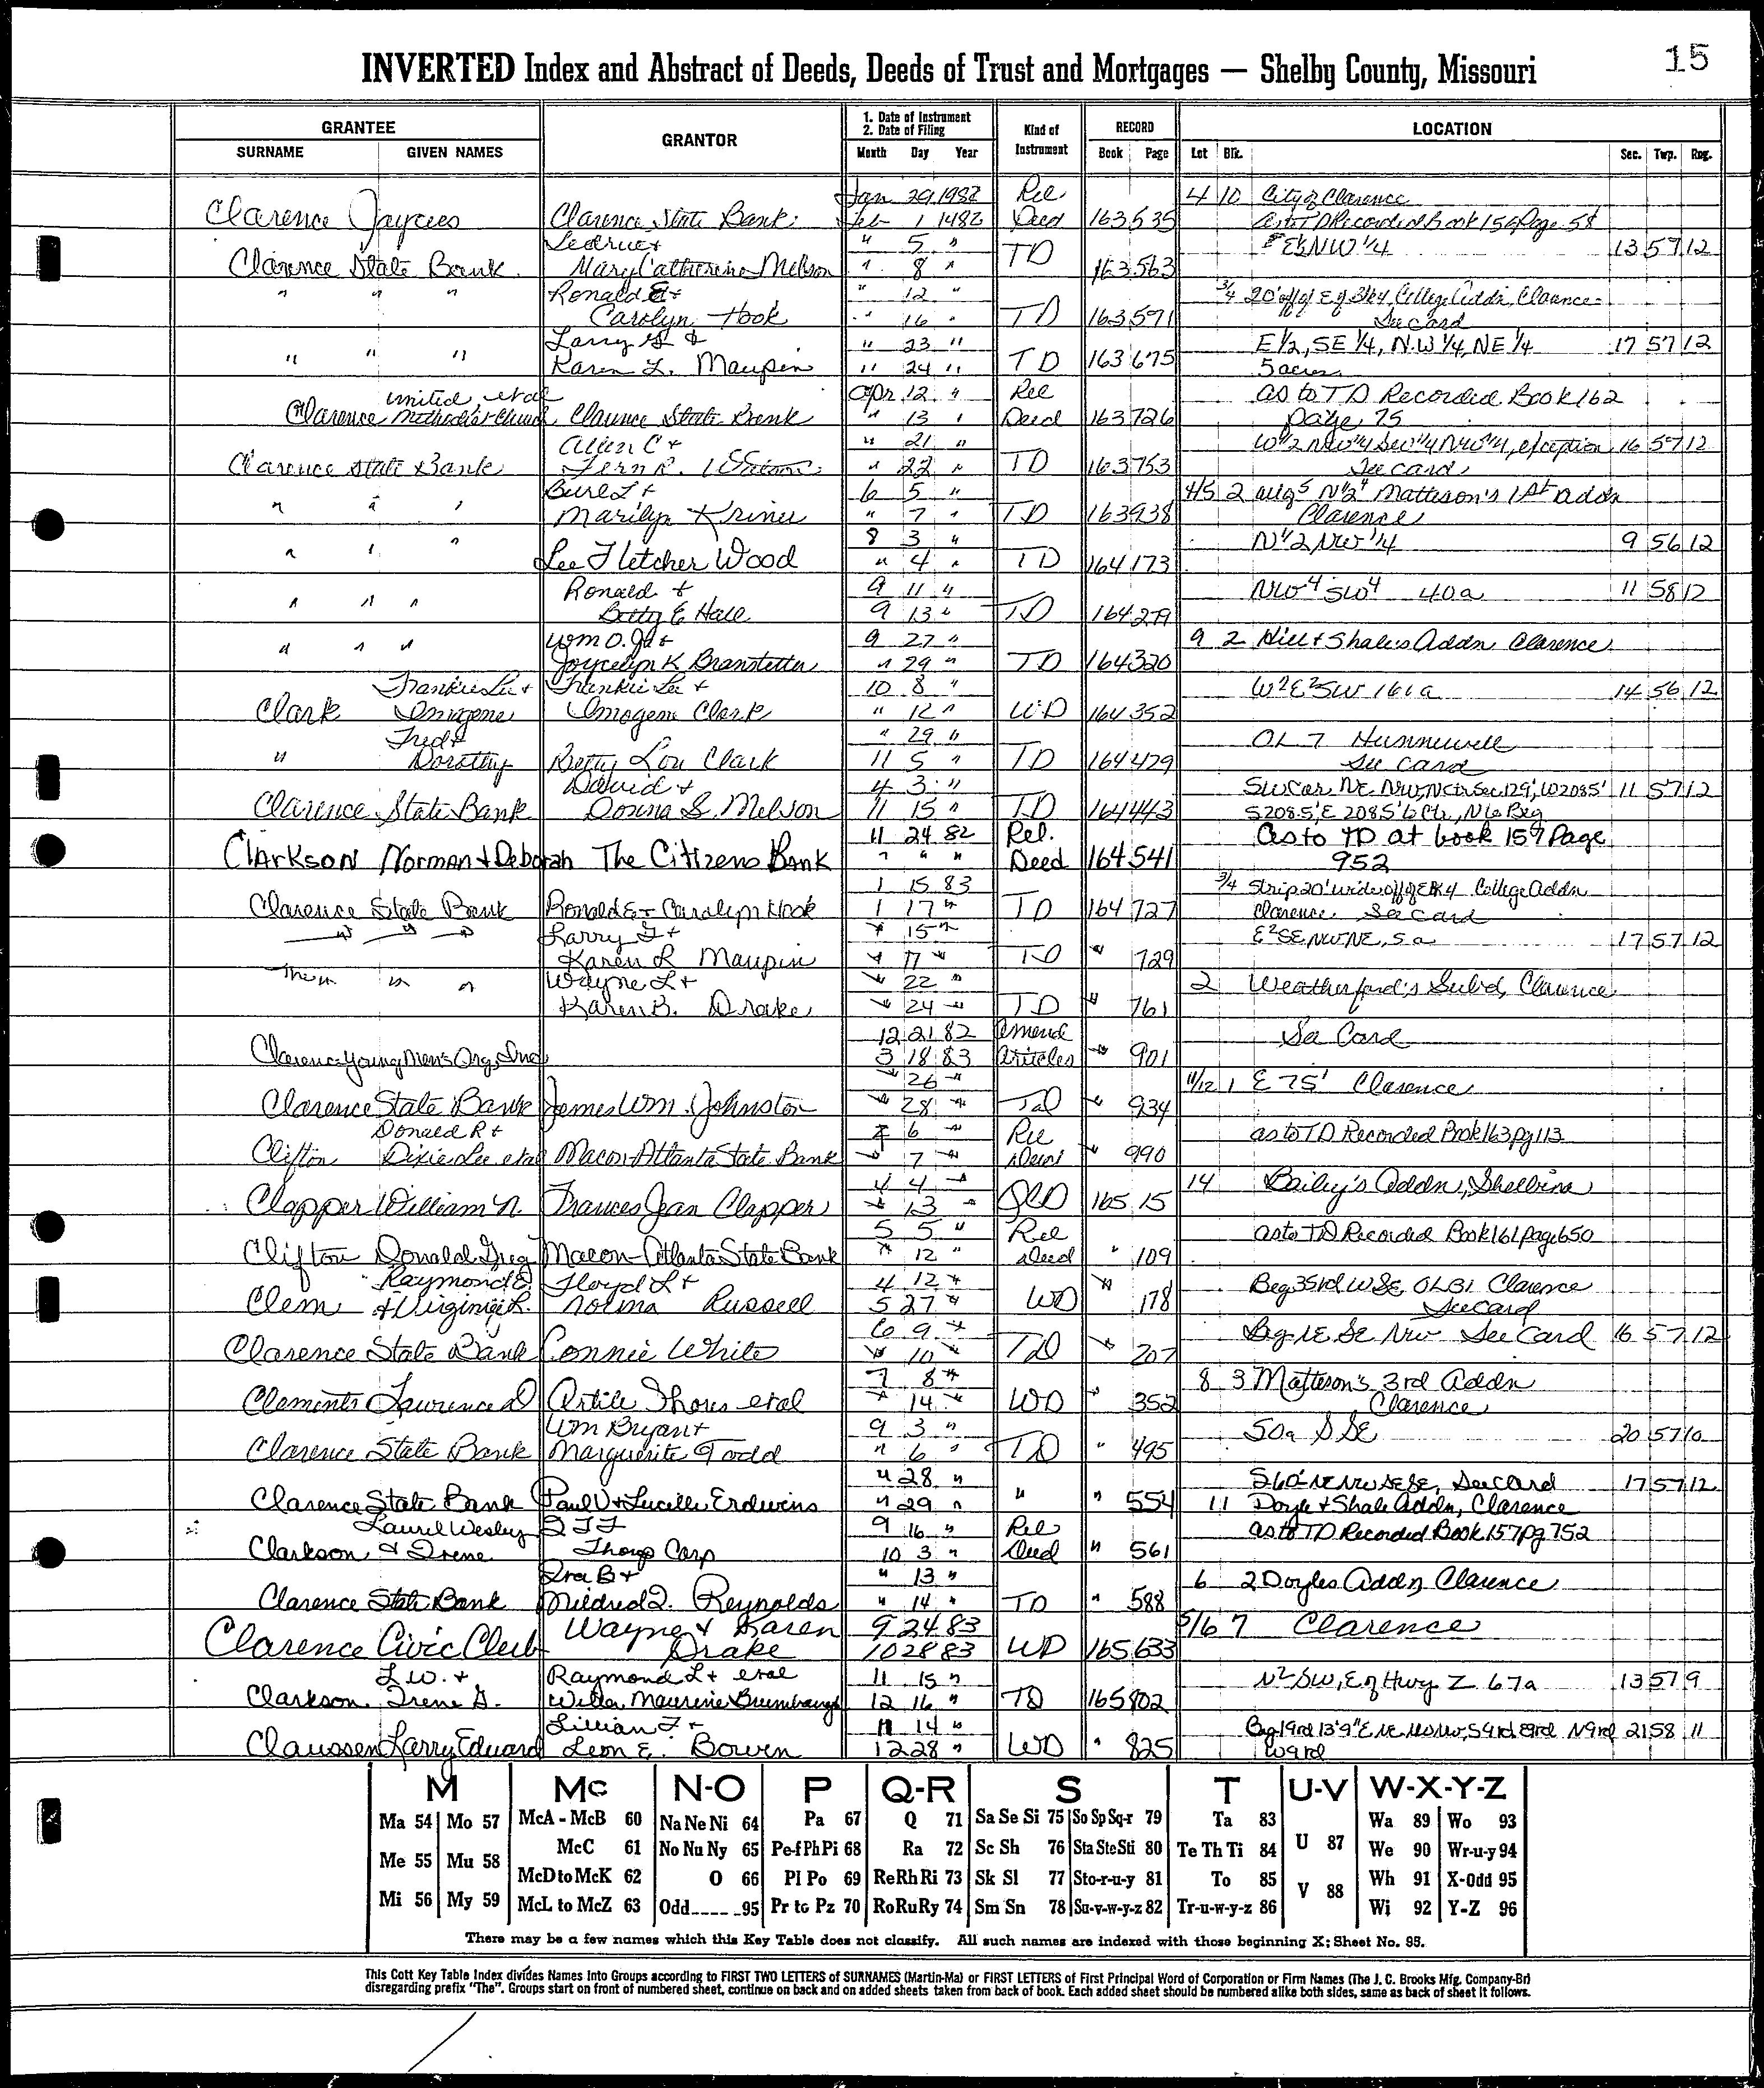 15
INVERTED Index and Abstract of Deeds, Deeds of Trust and Mortgages — Shelby County, Missouri
GRANTEE GRANTOR 1. Date of Instrument 2. Date of Filing Kind of Instrument RECORD LOCATION
SURNAME GIVEN NAMES Month Day Year Book Page Lot Blk. Sec. Twp. Rng.
Jan 29 1982 Rel 4 10 City of Clarence
Clarence Jaycees Clarence State Bank Feb 1 1982 Deed 163 535 as to TD Recorded Book 156 Page 58
Ledrue + " 5 " TD E½ NW ¼ 13 57 12
Clarence State Bank Mary Catherine Melson " 8 " 163 563
" " " Ronald E + " 12 " 3/4 20' off of E of Blk 4, College Addn, Clarence
Carolyn Hook " 16 " TD 163 591 See Card
Larry G + " 23 " E 1/2, SE 1/4, N.W 1/4, NE 1/4 17 57 12
" " " Karen L. Maupin " 24 " TD 163 675 5 acres
United, etal Apr 12 " Rel as to TD Recorded Book 162
Clarence Methodist Church Clarence State Bank " 13 " Deed 163 726 Page 75
Allen C + " 21 " W½ NW¼ SW¼ NW¼, exception 16 57 12
Clarence State Bank Fern R. Watson " 22 " TD 163 753 See card
Burl L + 6 5 " 4/5 2 N½ Matteson's 1st Addn
" " " Marilyn Kriner " 7 " TD 163 938 Clarence
8 3 " N½ NW¼ 9 56 12
" " " Lee Fletcher Wood " 4 " TD 164 173
Ronald + 9 11 " NW4 SW4 40a 11 58 12
" " " Betty E Hall 9 13 " TD 164 279
" " " Wm O. Jr + 9 27 " 9 2 Hill + Shales Addn Clarence
Joycelyn K Branstetter " 29 " TD 164 320
Frankie Lee + Frankie Lee + 10 8 " W2 E2 SW 161a 14 56 12
Clark Imogene Imogene Clark " 12 " WD 164 352
Fred + " 29 " OL 7 Hunnewell
" Dorothy Betty Lou Clark 11 5 " TD 164 429 See Card
David + 4 3 " SW Cor, NE, NW, N Ctr Sec 129', W 208.5' 11 57 12
Clarence State Bank Donna S. Melson 11 15 " TD 164 443 S 208.5', E 208.5' to Ctr, N to Beg
11 24 82 Rel. as to TD at book 159 Page
Clarkson Norman + Deborah The Citizens Bank " " " Deed 164 541 952
1 15 83 3/4 Strip 20' wide off of E Blk 4 College Addn
Clarence State Bank Ronald E + Carolyn Hook 1 17 " TD 164 727 Clarence. See card
" " " Larry G + " 15 " E2 SE NW NE, 5a 17 57 12
Karen L Maupin " 17 " TD " 729
The " " " Wayne L + " 22 " 2 Weatherford's Subd, Clarence
Karen B. Drake " 24 " TD " 761
12 21 82 Amend See Card
Clarence Young Men's Org, Inc 3 18 83 Articles " 901
" 26 " 11/12 1 E 75' Clarence
Clarence State Bank James Wm. Johnston " 28 " TD " 934
Donald R + 6 " Rel as to TD Recorded Book 163 pg 113
Clifton Dixie Lee etal Macon-Atlanta State Bank " 7 " Deed " 990
4 4 " 14 Bailey's Addn, Shelbina
Clapper William N. Frances Jean Clapper " 13 " QCD 165 15
5 5 " Rel as to TD Recorded Book 161 page 650
Clifton Donald Greg Macon-Atlanta State Bank " 12 " Deed " 109
Raymond E. Floyd L + 4 12 " Beg 35rd W SE, OL 31 Clarence
Clem + Virginia L. Norma Russell 5 27 " WD " 178 See Card
6 9 " Beg NE SE NW See Card 16 57 12
Clarence State Bank Connie White " 10 " TD " 207
7 8 " 8 3 Matteson's 3rd Addn
Clements Lawrence D Artile Thores etal " 14 " WD " 352 Clarence
Wm Bryan + 9 3 " 50a S SE 20 57 10
Clarence State Bank Marguerite Todd " 6 " TD " 495
" 28 " S 60' NE NW SE SE, See Card 17 57 12
Clarence State Bank Paul V + Lucille Erdwins " 29 " " " 554 11 Doyle + Shale Addn, Clarence
Laurel Wesley ITT 9 16 " Rel as to TD Recorded Book 157 pg 752
Clarkson + Irene Thorp Corp 10 3 " Deed " 561
Ira B + " 13 " 6 2 Doyles Addn Clarence
Clarence State Bank Mildred I. Reynolds " 14 " TD " 588
Wayne + Karen 9 24 83 5/6 7 Clarence
Clarence Civic Club Drake 10 28 83 WD 165 633
L.W. + Raymond L + etal 11 15 " N2 SW, E of Hwy Z 67a 13 57 9
Clarkson Irene G. Willa Maurine Brumbaugh 12 16 " TD 165 802
Lillian F + 11 14 " Beg 19rd 13'9" E NE, S 9rd, N 9rd 21 58 11
Claussen Larry Edward Leon E. Bowen 12 28 " WD " 825 W 9rd
M Mc N-O P Q-R S T U-V W-X-Y-Z
Ma 54 Mo 57 McA - McB 60 Na Ne Ni 64 Pa 67 Q 71 Sa Se Si 75 So Sp Sq-r 79 Ta 83 U 87 Wa 89 Wo 93
McC 61 No Nu Ny 65 Pe-f Ph Pi 68 Ra 72 Sc Sh 76 Sta Ste Sti 80 Te Th Ti 84 We 90 Wr-u-y 94
Me 55 Mu 58 McD to McK 62 O 66 Pl Po 69 Re Rh Ri 73 Sk Sl 77 Sto-r-u-y 81 To 85 V 88 Wh 91 X-Odd 95
Mi 56 My 59 McL to McZ 63 Odd 95 Pr to Pz 70 Ro Ru Ry 74 Sm Sn 78 Su-v-w-y-z 82 Tr-u-w-y-z 86 Wi 92 Y-Z 96
There may be a few names which this Key Table does not classify. All such names are indexed with those beginning X; Sheet No. 95.
This Cott Key Table Index divides Names Into Groups according to FIRST TWO LETTERS of SURNAMES (Martin-Ma) or FIRST LETTERS of First Principal Word of Corporation or Firm Names (The J. C. Brooks Mfg. Company-Br)
disregarding prefix "The". Groups start on front of numbered sheet, continue on back and on added sheets taken from back of book. Each added sheet should be numbered alike both sides, same as back of sheet it follows.